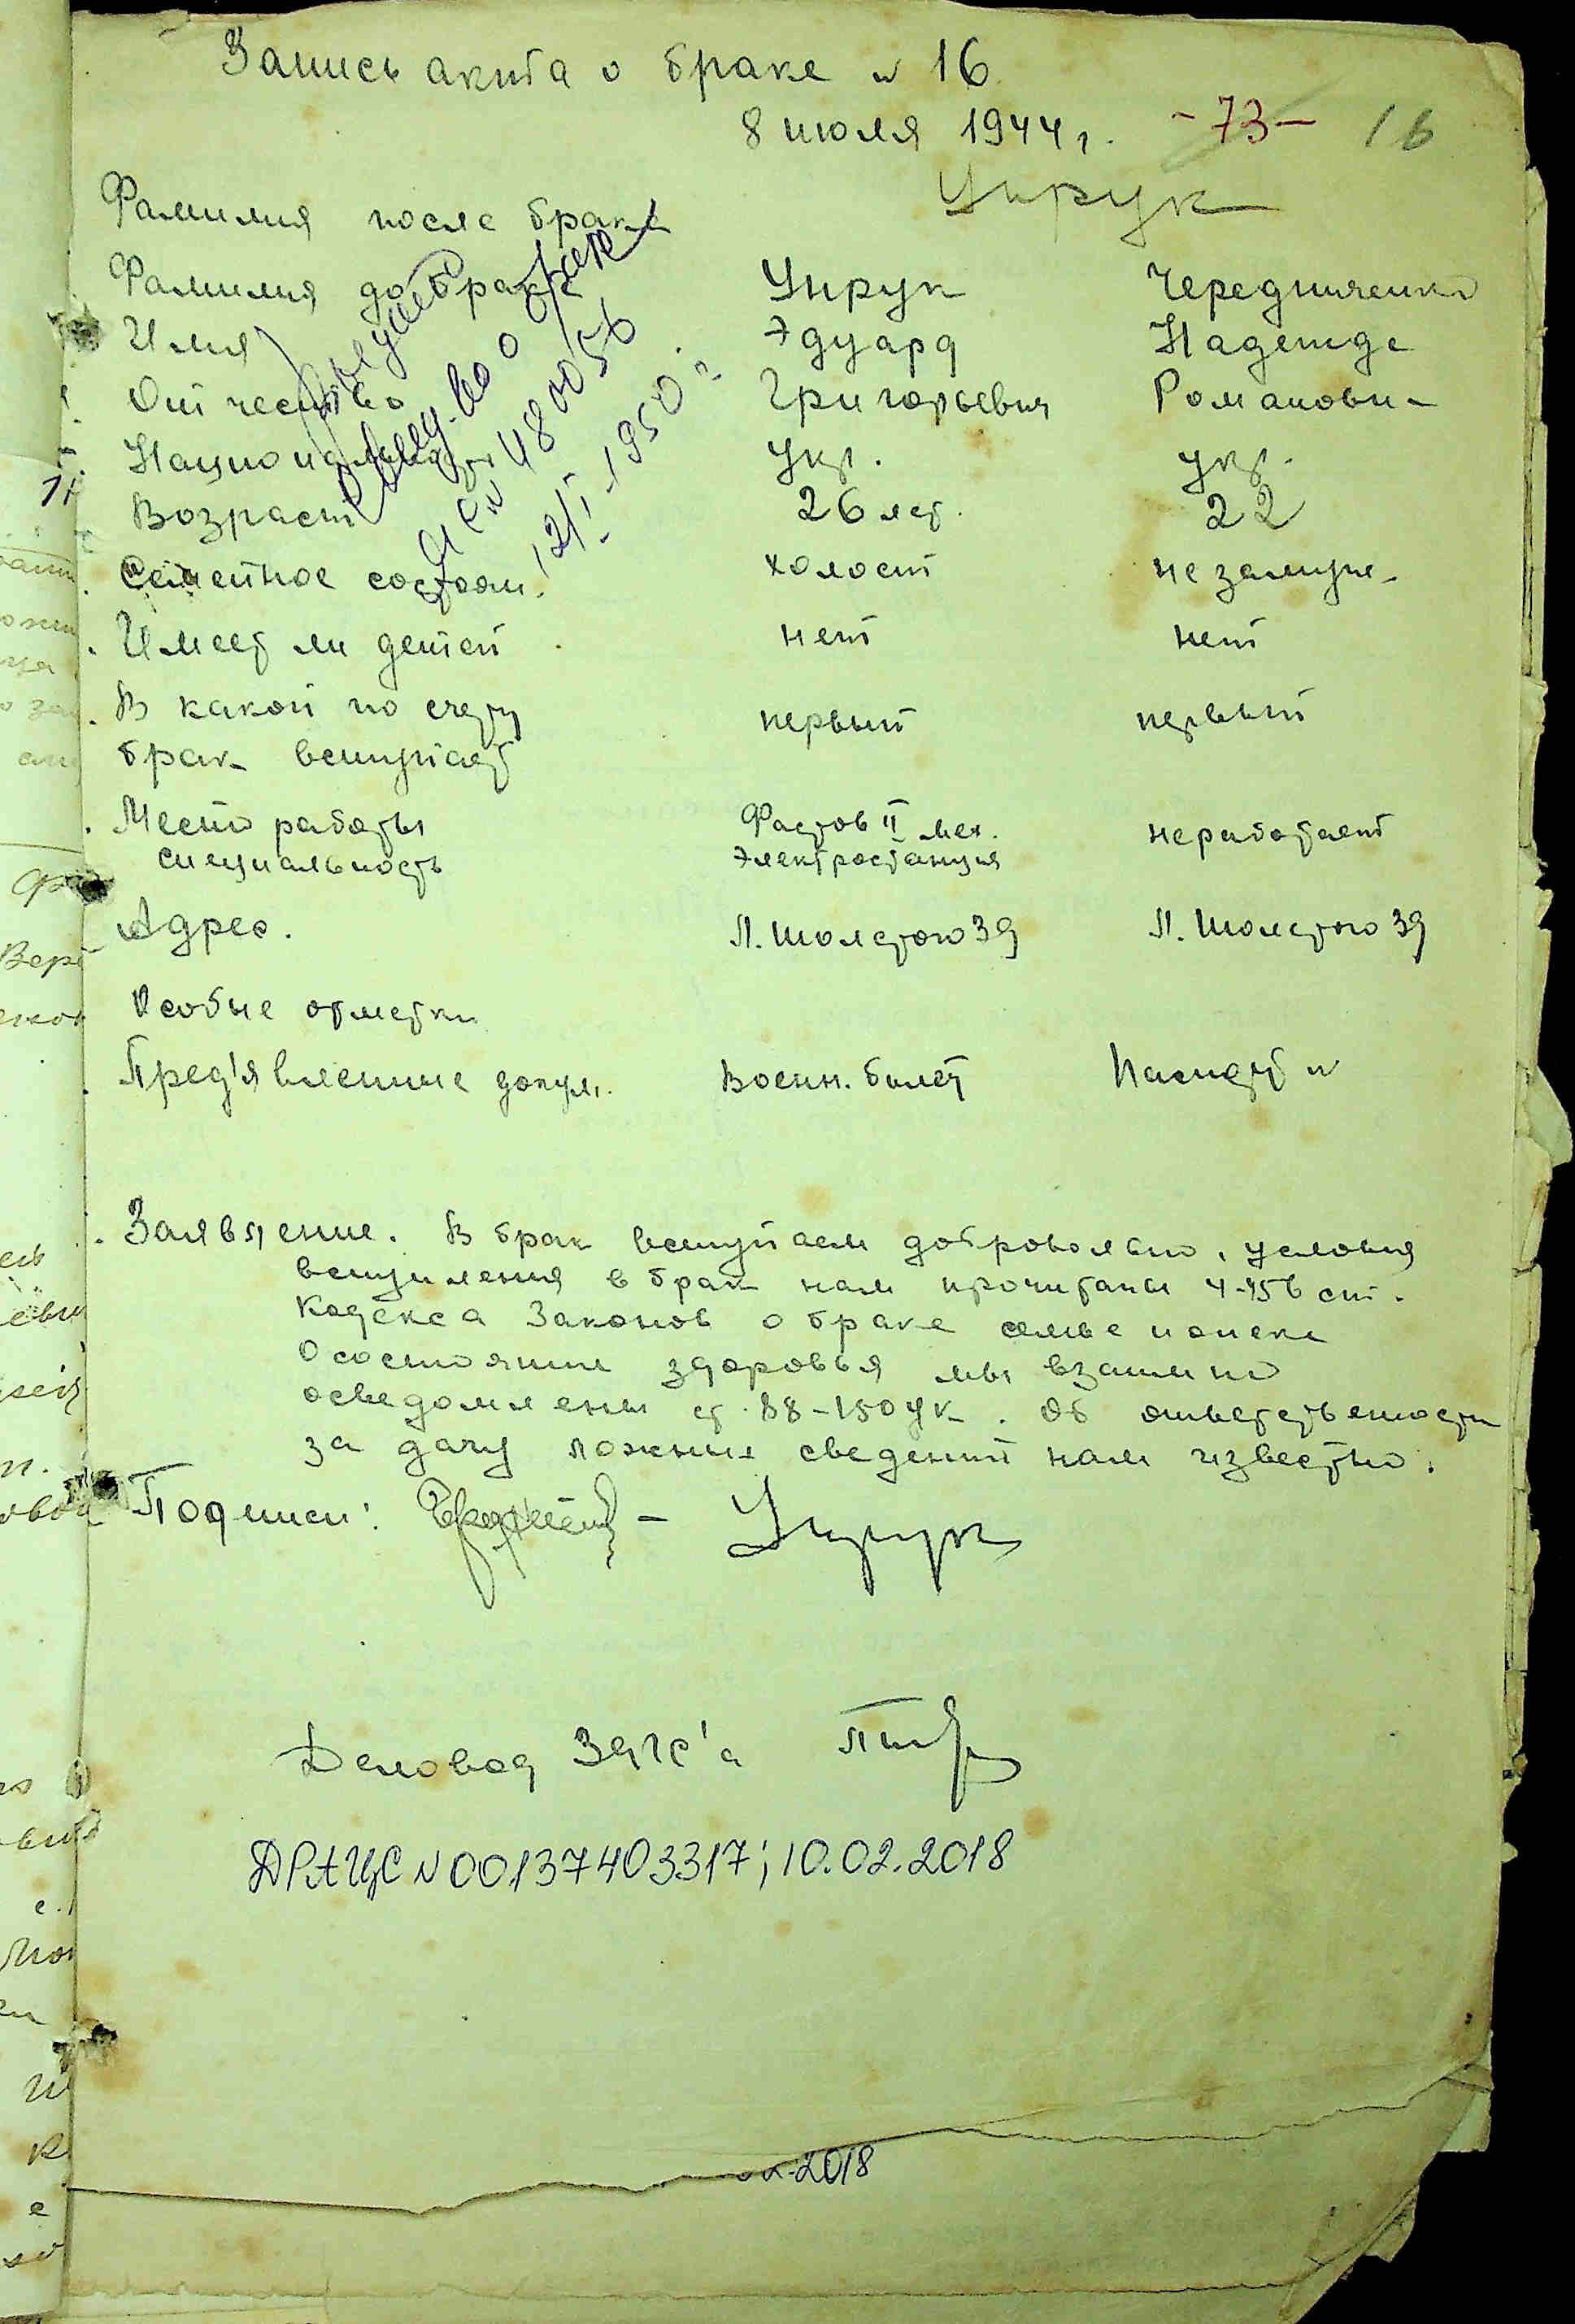 Запись акта о браке № 16
8 июля 1944 г. -73- 16
Фамилия после брака Унрук
Фамилия до брака Унрук Чередниченко
Имя Эдуард Надежда
Отчество Григорьевич Романовн-
Национальность укр. укр.
Возраст 26 лет. 22
Семейное состоян. холост не замуж-
Имеет ли детей нет нет
В какой по счету первый первый
брак вступает
Место работы Фастов II мех. не работает
специальность электростанция
Адрес. Л. Толстого 39 Л. Толстого 39
Особые отметки
Пред'явленные докум. Военн. билет Паспорт №
свид-во о браке
№ 480056
12/I-1950 г.
Заявление. В брак вступаем добровольно, условия
вступления в брак нам прочитаны 4-156 ст.
Кодекса Законов о браке семье и опеке
О состоянии здоровья мы взаимно
осведомлены ст. 88-150 УК. Об ответственности
за дачу ложных сведений нам известно.
Подписи: - Унрук
Деловод ЗАГС'а
ДРАЦС N 00137403317; 10.02.2018
2018